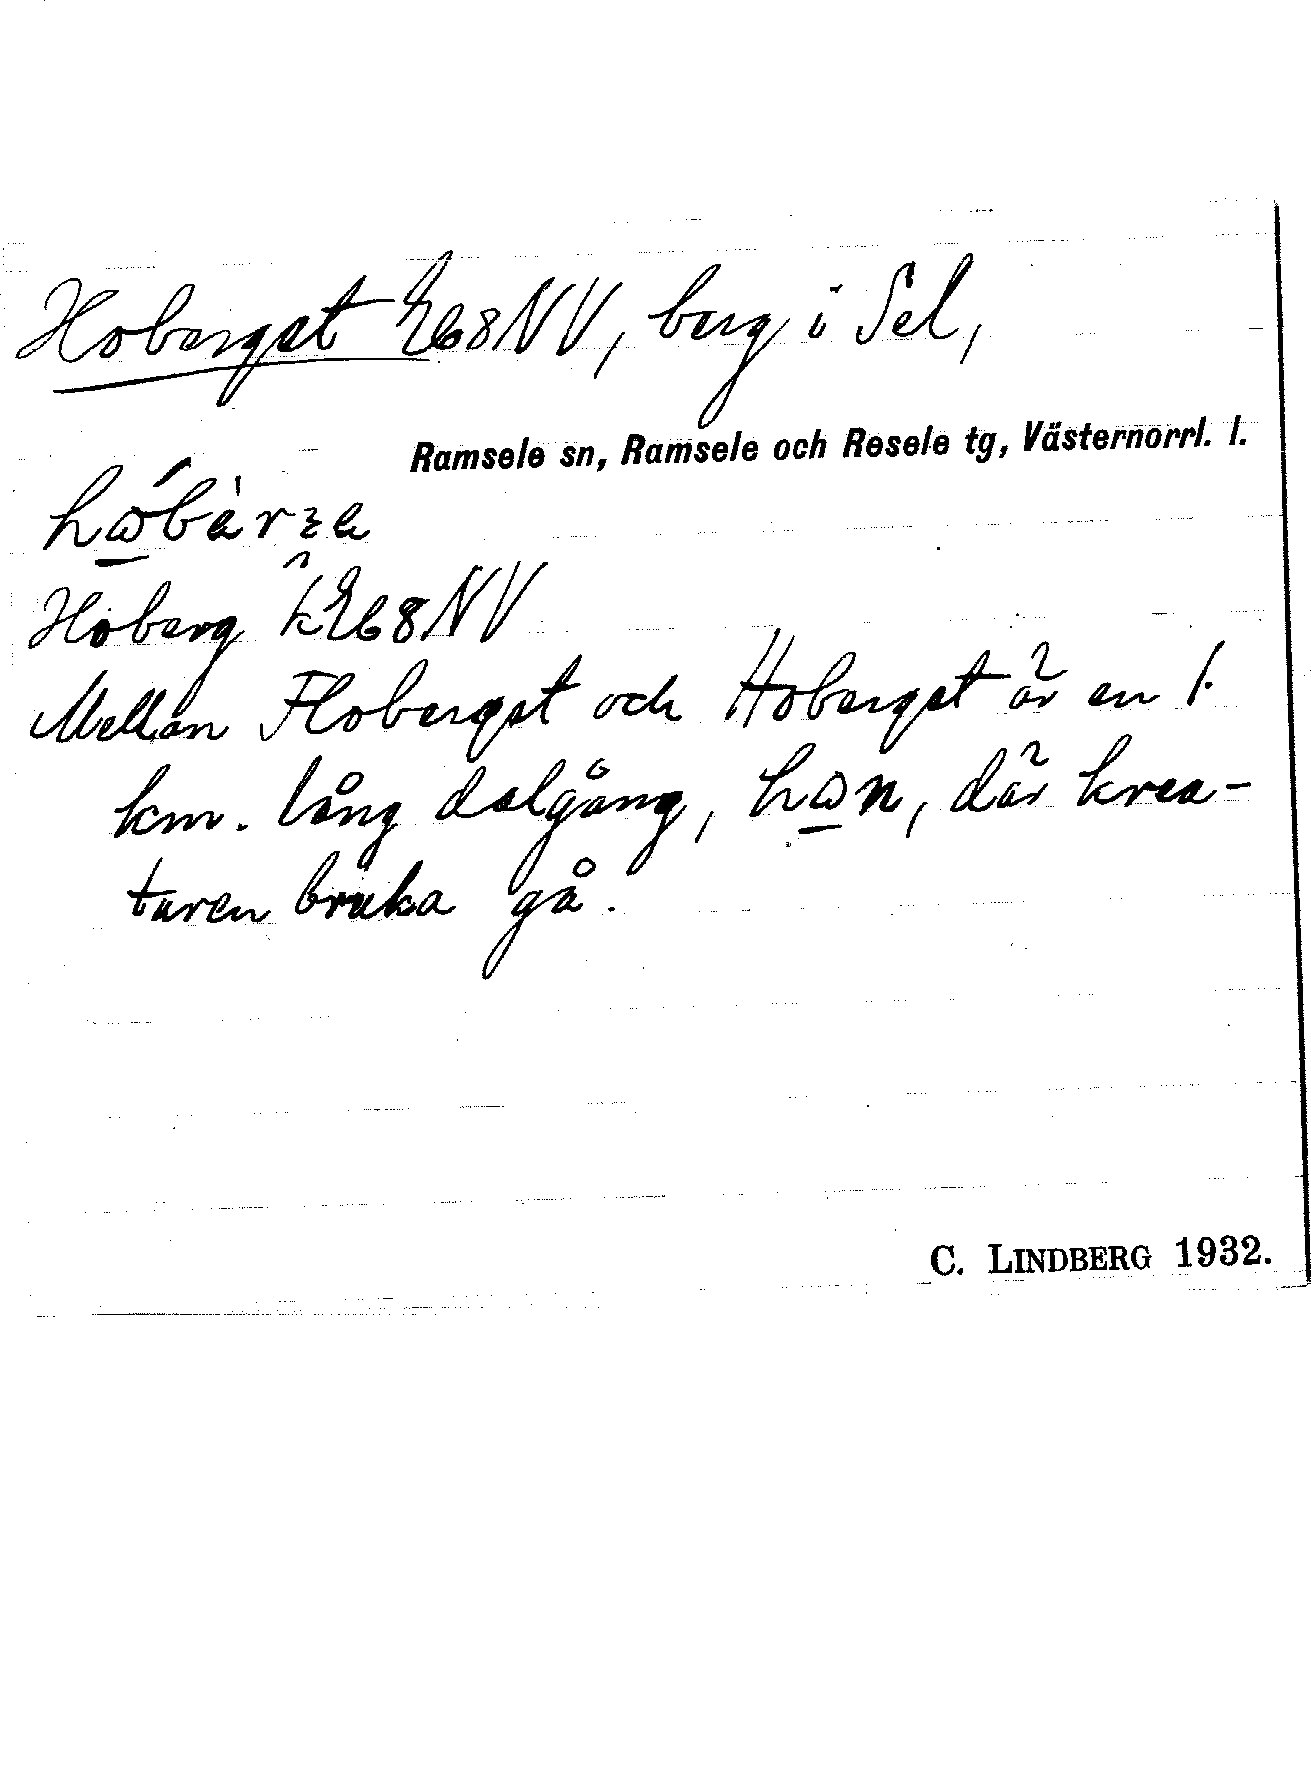 Hoberget E68NV, berg i Sel,
Ramsele sn, Ramsele och Resele tg, Västernorrl. l.
Hoberg k E68NV
Mellan Floberget och Hoberget är en 1.
km. lång dalgång, hɷn, där krea-
turen bruka gå.
C. LINDBERG 1932.